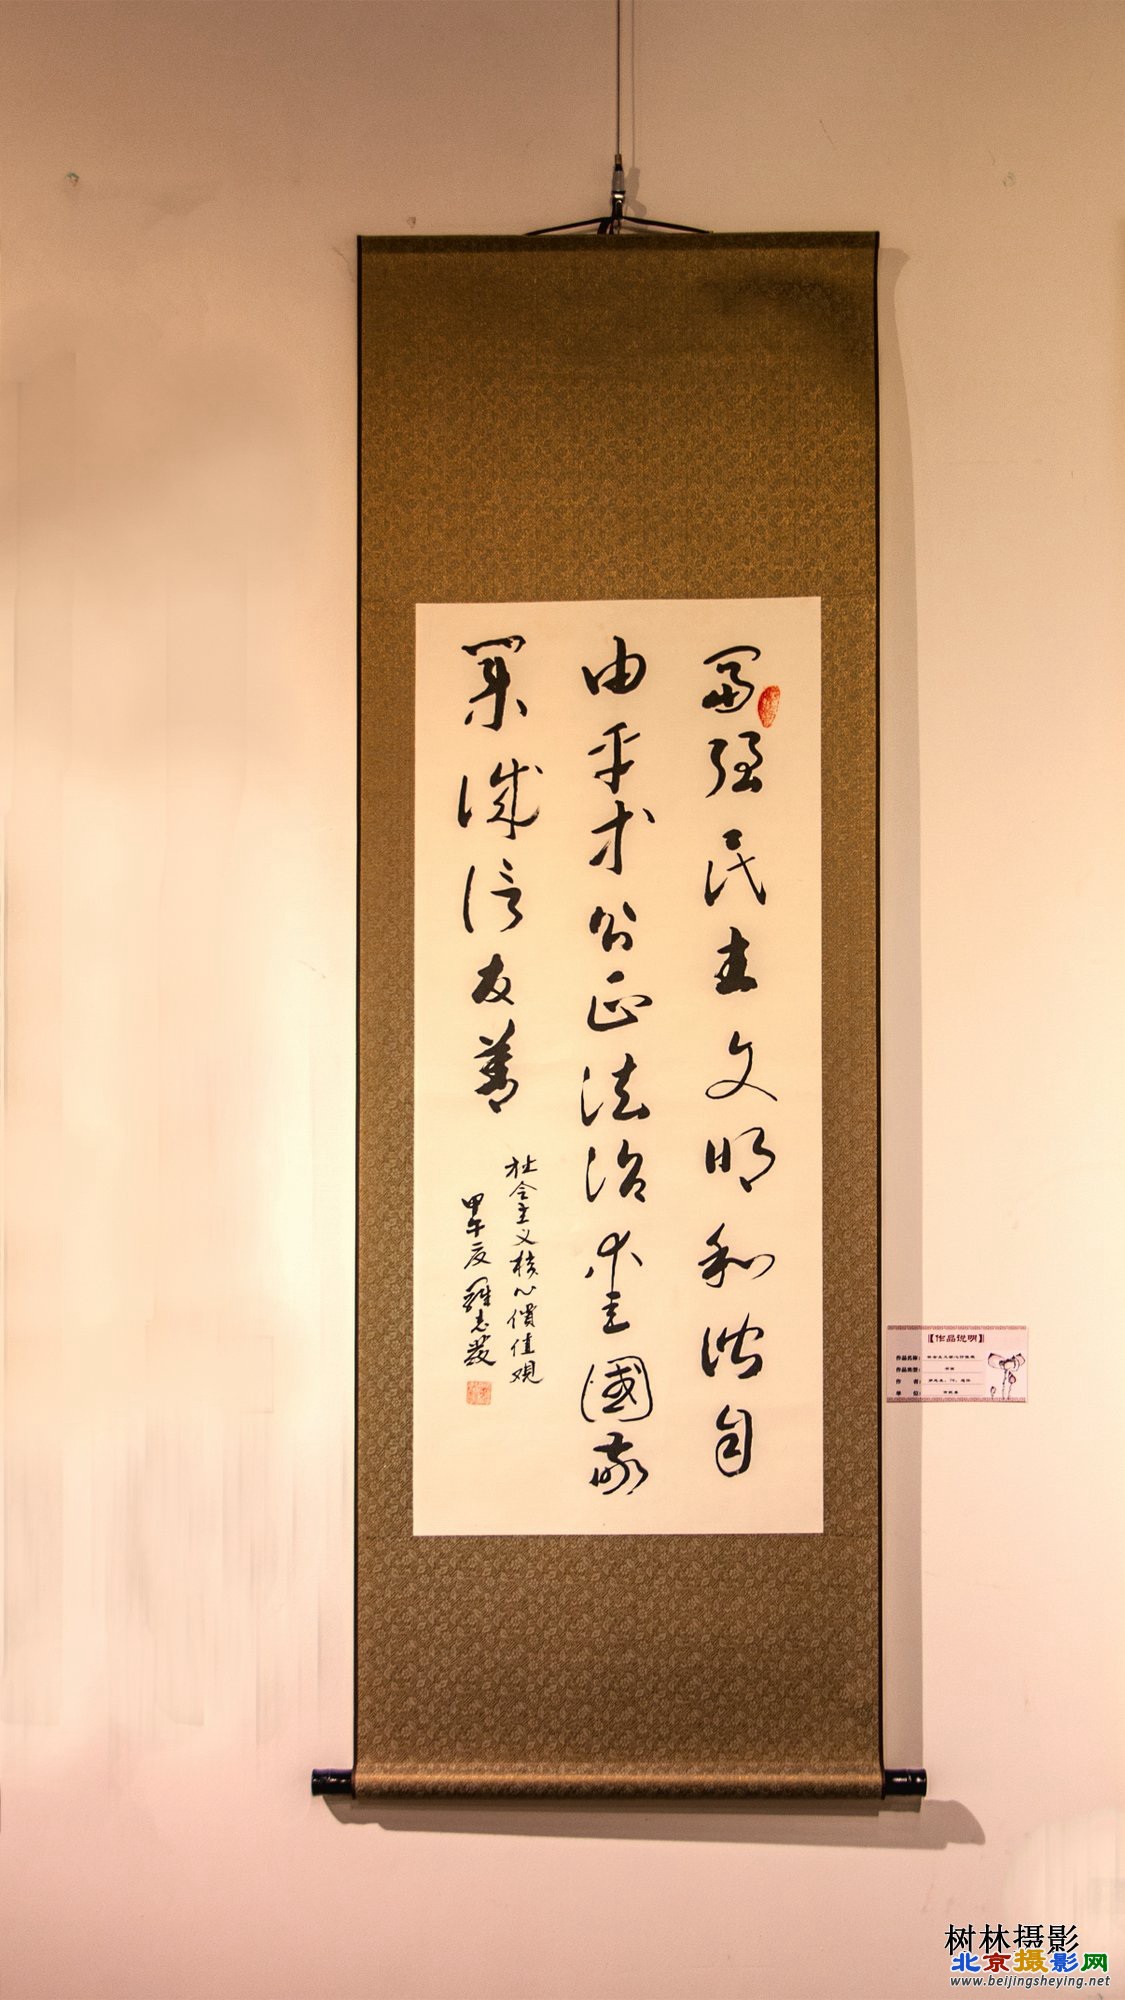 富强民主文明和谐自
由平等公正法治爱國敬
業诚信友善
社会主义核心價值观
甲午夏羅志發
【作品说明】
作品名称：社会主义核心价值观
作品类型：
作 者：
单 位：
树林摄影
北京摄影网
www.beijingsheying.net